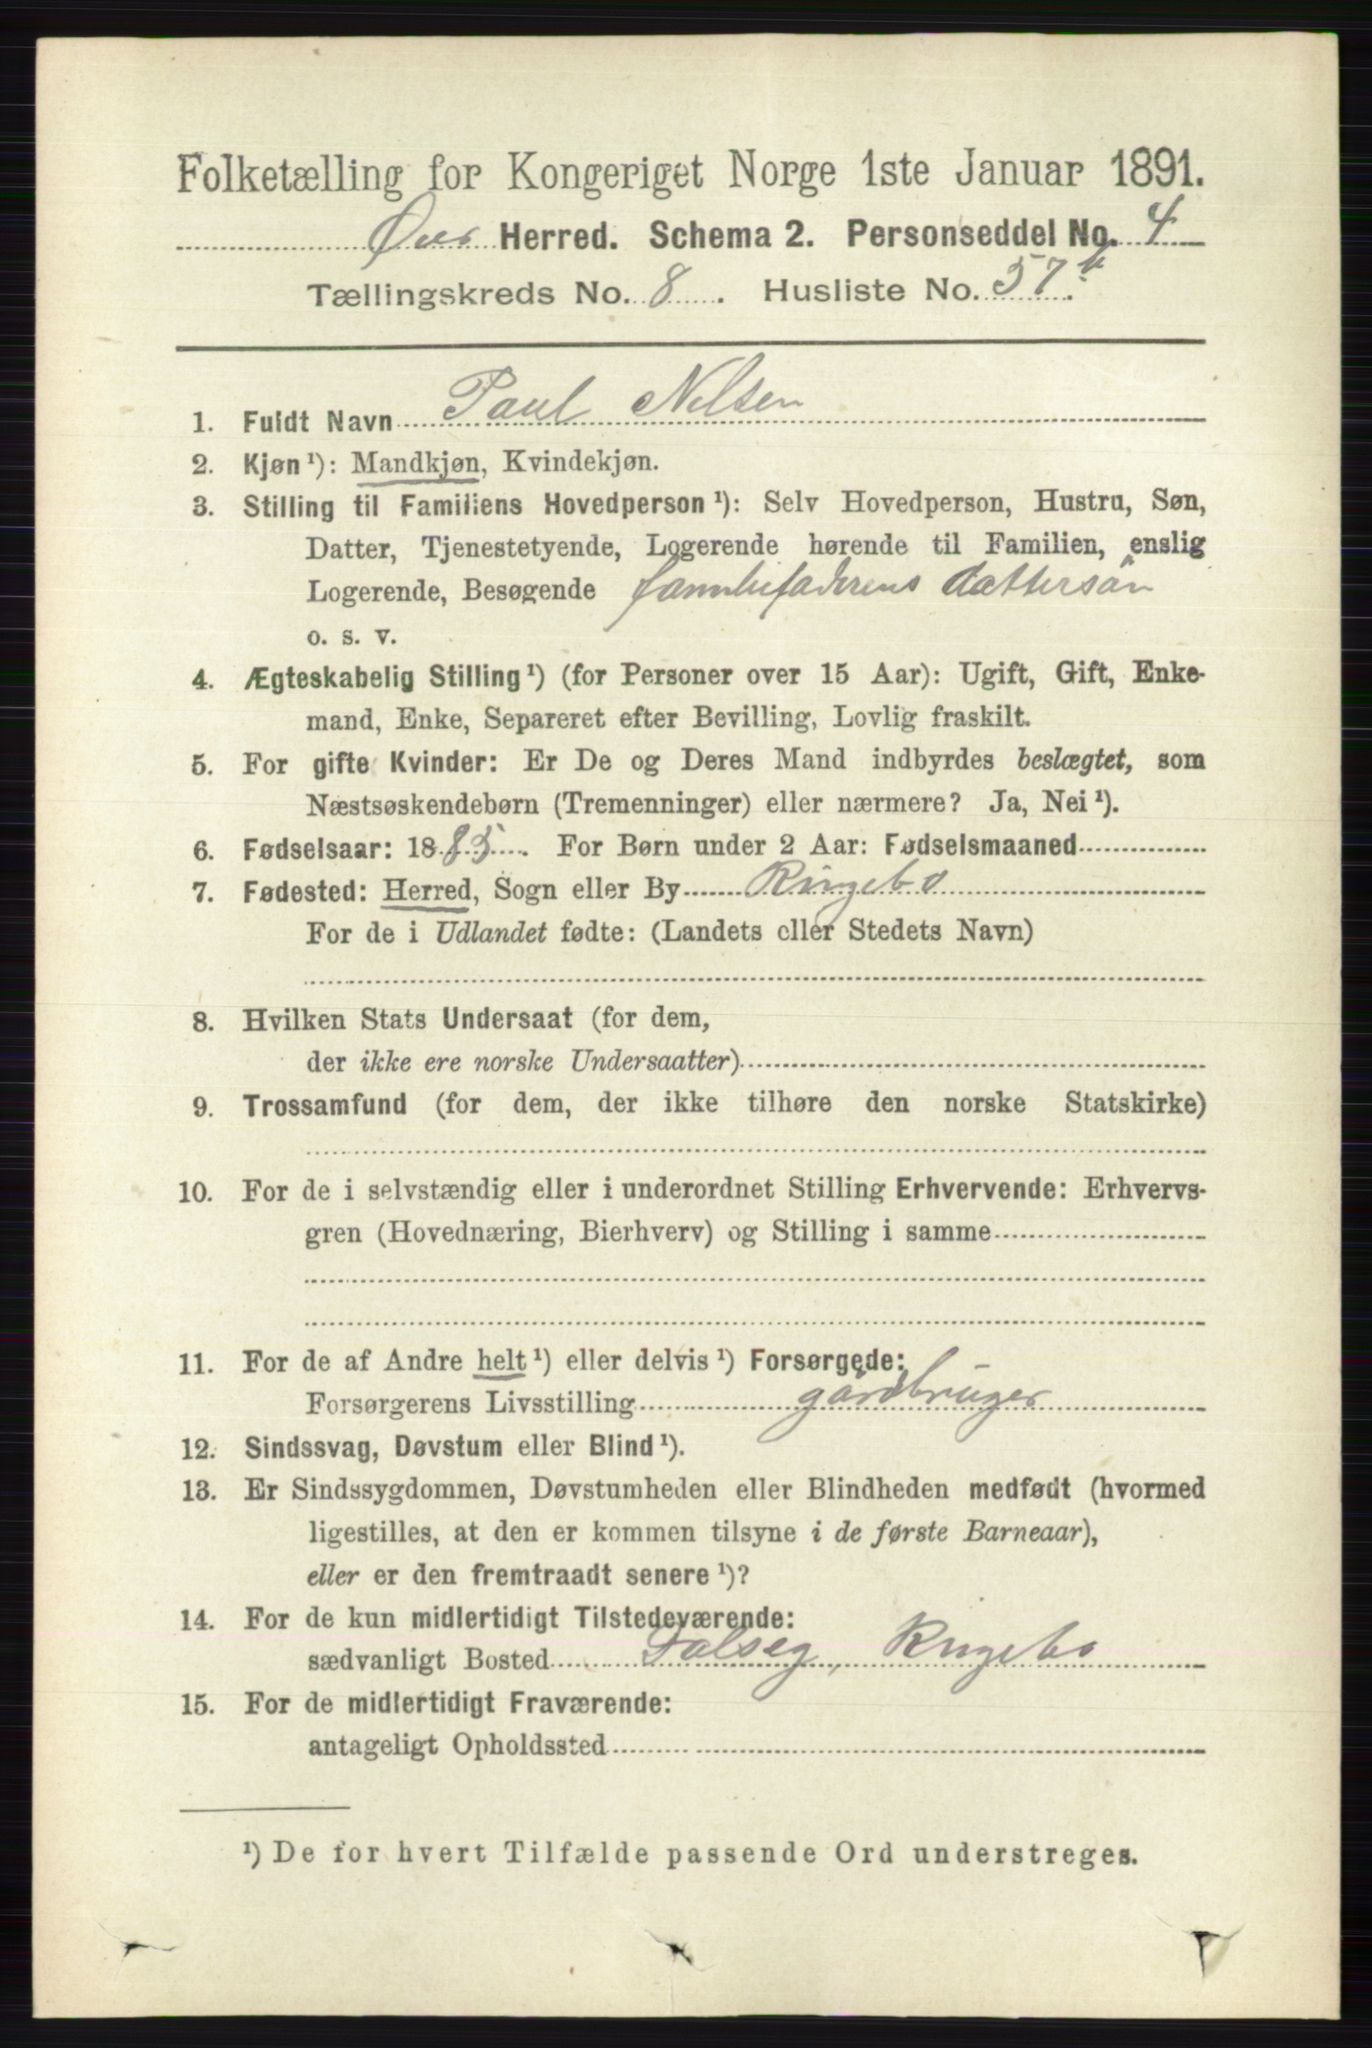 Folketælling for Kongeriget Norge 1ste Januar 1891.
Øier Herred. Schema 2. Personseddel No. 4
Tællingskreds No. 8. Husliste No. 57 b.
1. Fuldt Navn Paul Nilsen
2. Kjøn ¹): Mandkjøn, Kvindekjøn.
3. Stilling til Familiens Hovedperson ¹): Selv Hovedperson, Hustru, Søn,
Datter, Tjenestetyende, Logerende hørende til Familien, enslig
Logerende, Besøgende familiefaderens dattersön
o. s. v.
4. Ægteskabelig Stilling ¹) (for Personer over 15 Aar): Ugift, Gift, Enke-
mand, Enke, Separeret efter Bevilling, Lovlig fraskilt.
5. For gifte Kvinder: Er De og Deres Mand indbyrdes beslægtet, som
Næstsøskendebørn (Tremenninger) eller nærmere? Ja, Nei ¹).
6. Fødselsaar: 1885. For Børn under 2 Aar: Fødselsmaaned
7. Fødested: Herred, Sogn eller By Ringebo
For de i Udlandet fødte: (Landets eller Stedets Navn)
8. Hvilken Stats Undersaat (for dem,
der ikke ere norske Undersaatter)
9. Trossamfund (for dem, der ikke tilhøre den norske Statskirke)
10. For de i selvstændig eller i underordnet Stilling Erhvervende: Erhvervs-
gren (Hovednæring, Bierhverv) og Stilling i samme
11. For de af Andre helt ¹) eller delvis ¹) Forsørgede:
Forsørgerens Livsstilling gårdbruger
12. Sindssvag, Døvstum eller Blind ¹).
13. Er Sindssygdommen, Døvstumheden eller Blindheden medfødt (hvormed
ligestilles, at den er kommen tilsyne i de første Barneaar),
eller er den fremtraadt senere ¹)?
14. For de kun midlertidigt Tilstedeværende:
sædvanligt Bosted Dalseg, Ringebo
15. For de midlertidigt Fraværende:
antageligt Opholdssted
¹) De for hvert Tilfælde passende Ord understreges.